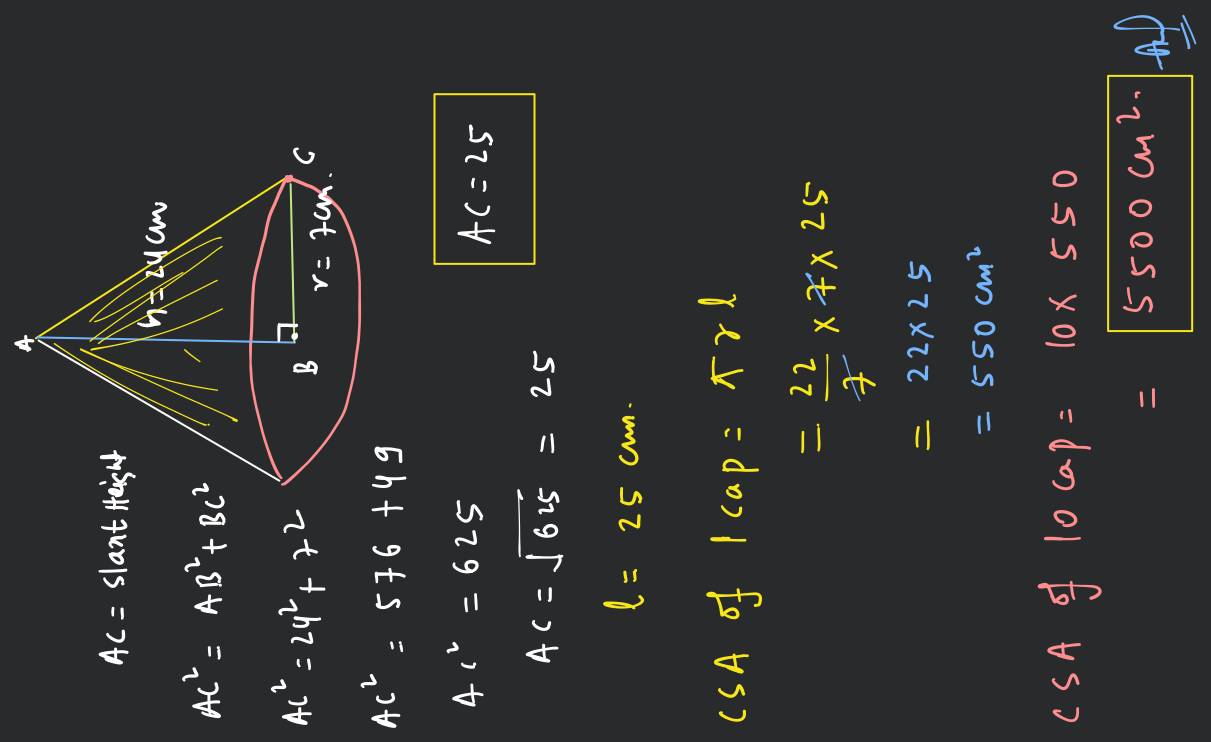 A
h = 24 cm
B
C
r = 7 cm.
AC = slant Height
AC² = AB² + BC²
AC² = 24² + 7²
AC² = 576 + 49
AC² = 625
AC = √625 = 25
AC = 25
l = 25 cm.
CSA of 1 cap = π r l
= 22/7 × 7 × 25
= 22 × 25
= 550 cm²
CSA of 10 cap = 10 × 550
= 5500 cm².